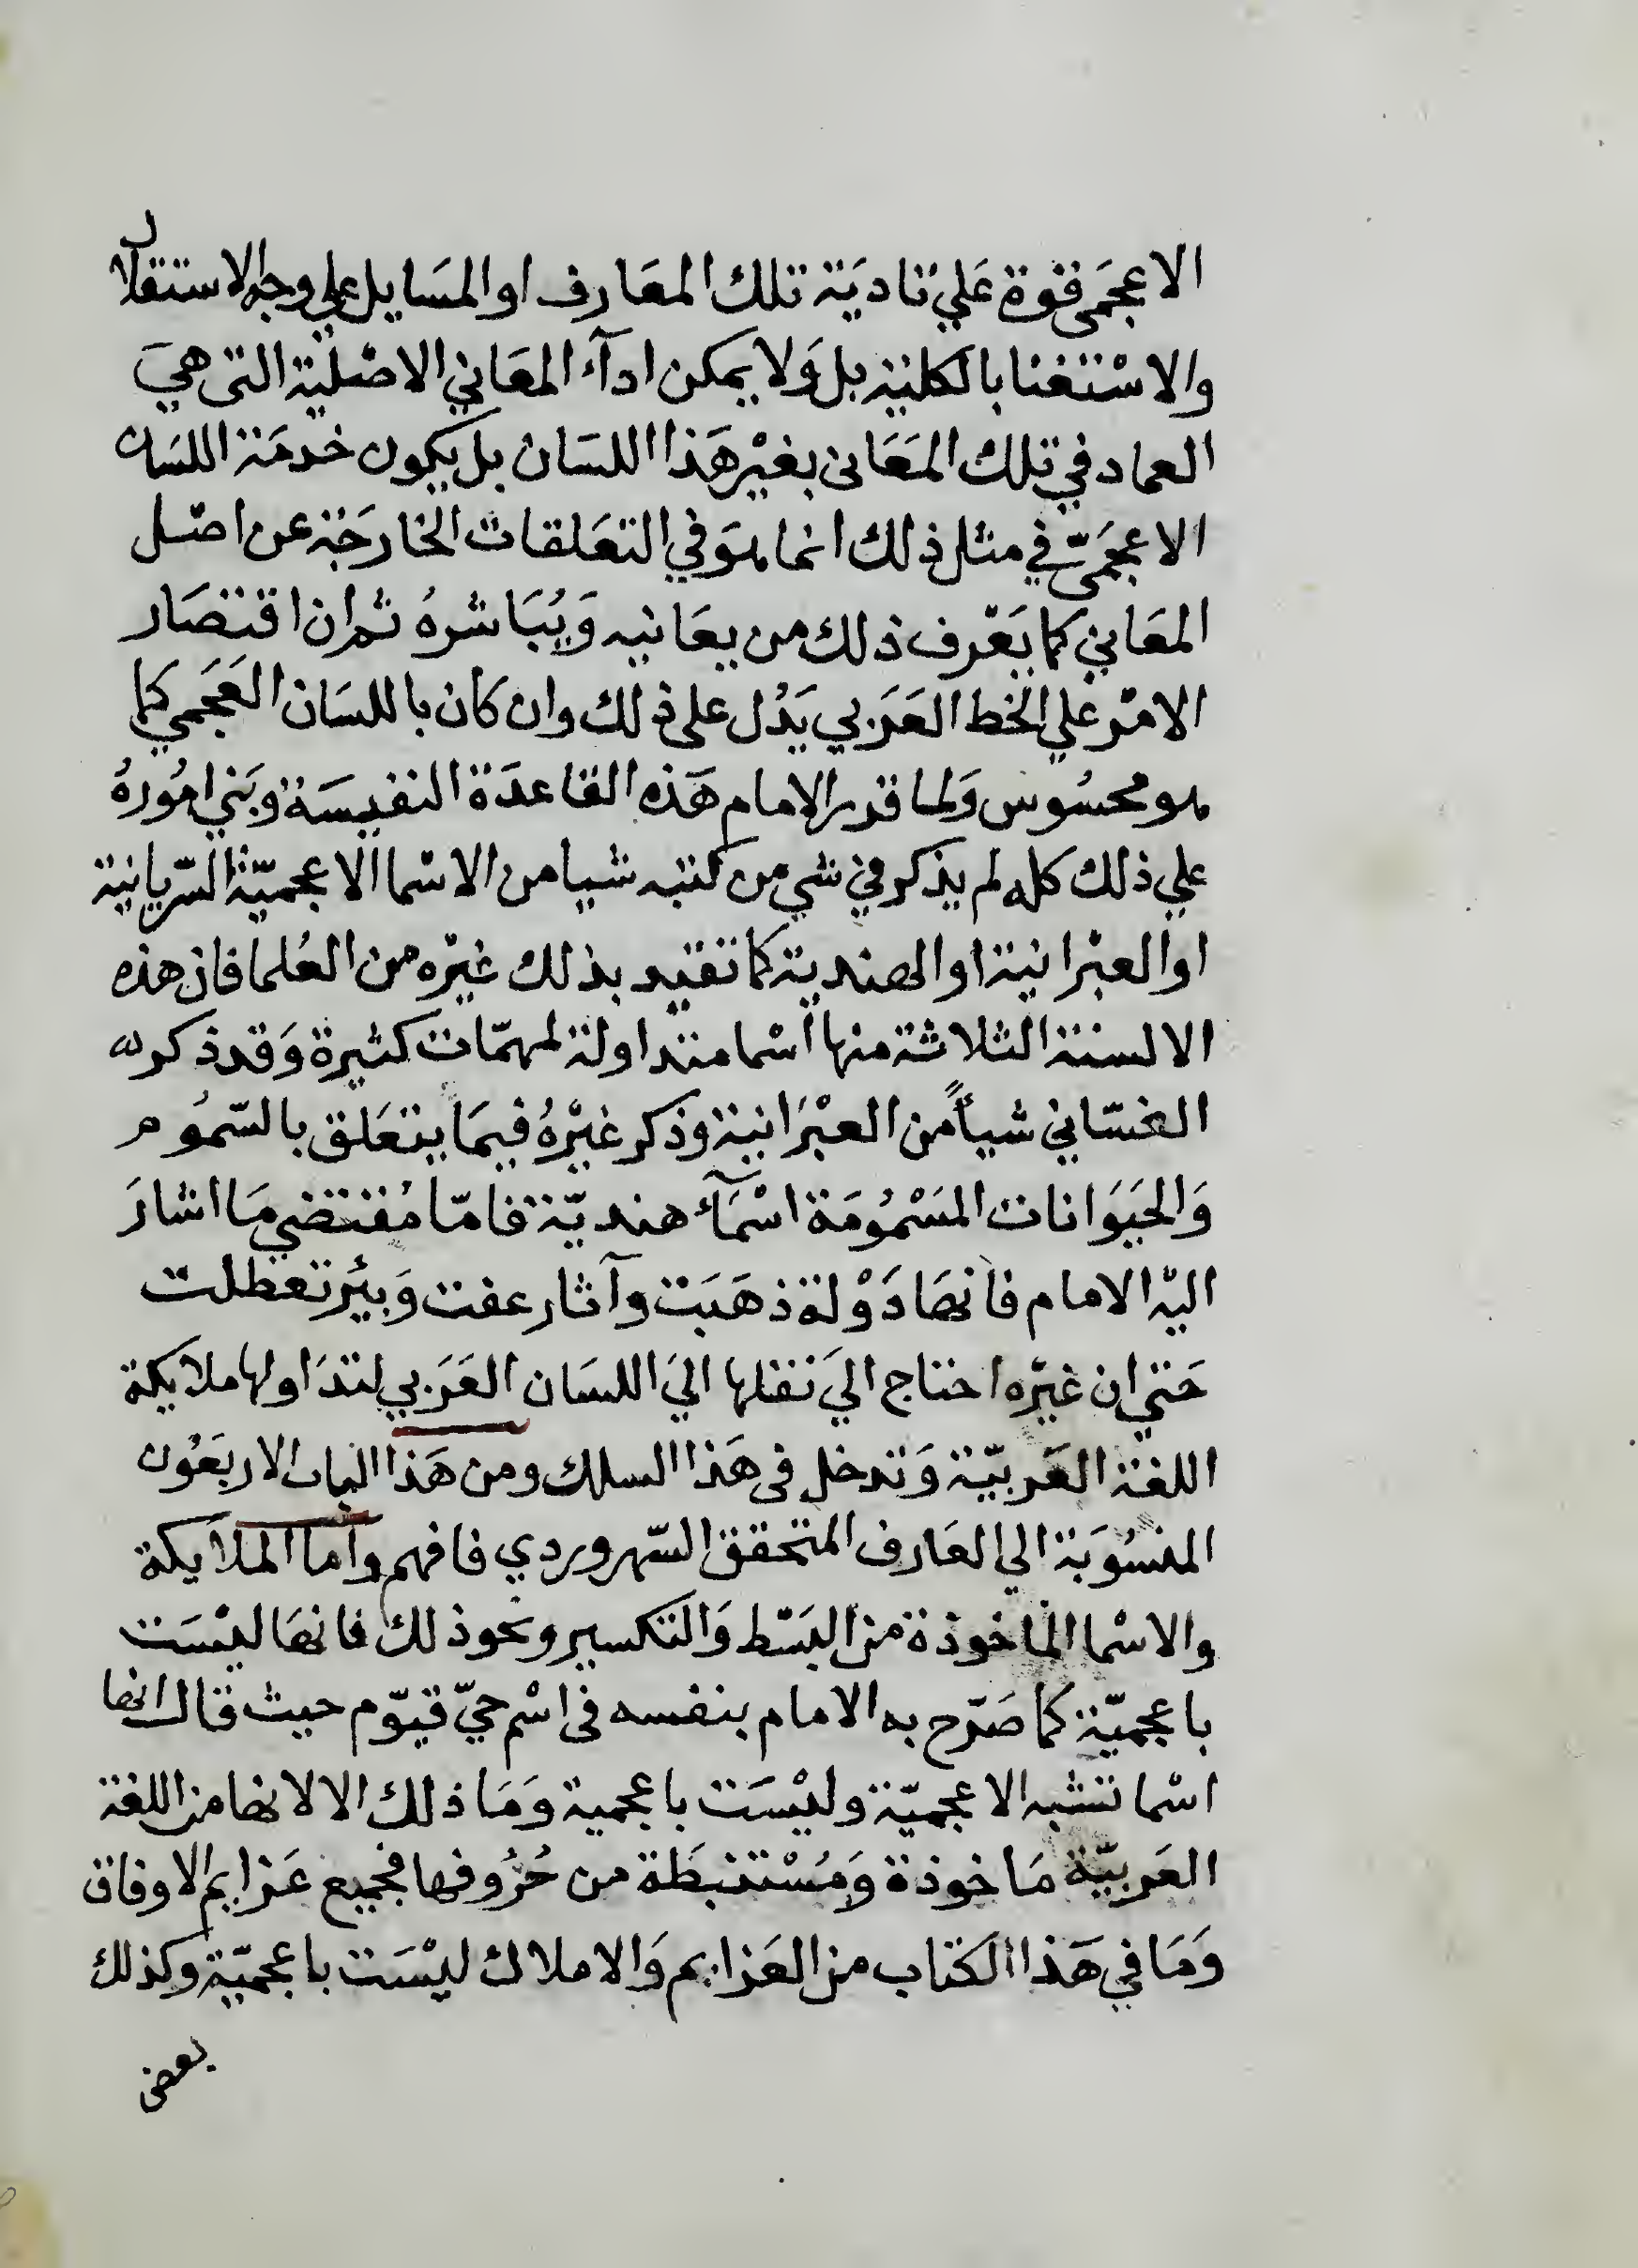 الاعجمى قوة عَلي تاديَة تلك المعَارف او المسَايل علي وجه الاستقلال
والاسْتغنا بالكلية بل وَلا يمكن ادآء المعَاني الاصْلية التى هيَ
العماد في تلك المعَانى بغيْر هَذا اللسَان بل يكون خدمَة اللسَان
الاعجَمىّ في مثل ذلك انما هوَ في التعَلقات الخارجَة عن اصْل
المعَاني كما يَعْرف ذلك من يعَانيه وَيُبَاشرهُ ثم ان اقتصَار
الامْر علي الخط العَرَبي يَدُل على ذلك وان كان باللسَان العَجَمي كما
هو محسُوس وَلما قدر الامام هَذه القاعدَة النفيسَة وبَني امُورهُ
علي ذلك كله لم يذكر في شي من كتبه شيا من الاسْما الاعجميّة السّريانية
او العبْرانية او الهندية كما تقيد بذلك غيْره من العُلما فان هذه
الالسنة الثلاثة منها اسْما متداولة لمهمّات كثيرة وَقد ذكر
الغسّاني شيأً من العبْرَانية وذكر غيْرهُ فيمَا يتعَلق بالسّمُوم
وَالحيَوَانات المَسْمُومَة اسْمَآء هنديّة فامّا مُقتضي مَا اشارَ
اليْه الامام فانهَا دَوْلة ذهَبَت وآثار عفت وَبئر تعطلت
حَتي ان غيْره احتاج اليَ نقلها اليَ اللسَان العَرَبي لتدَاولها ملايكة
اللغة العَربيّة وَتدخل فى هَذا السلك ومن هَذا الباب الاربَعُون
المنسُوبَة الي العَارف المتحقق السّهروردي فافهم وَاما الملايكة
والاسْما الماخوذة من البَسْط وَالتكسير ونحو ذلك فانهَا ليْسَت
باعجميّة كما صَرّح به الامام بنفسه فى اسْم حيّ قيّوم حيث قال انها
اسْما تشبه الاعجميّة وليْسَت باعجمية وَمَا ذلك الا لانها من اللغة
العَربيّة مَاخوذة وَمُسْتنبطَة من حُرُوفها فجميع عَزايم الاوفاق
وَمَا في هَذا الكتاب من العَزايم وَالاملاك ليْسَت باعجميّة وكذلك
بعض